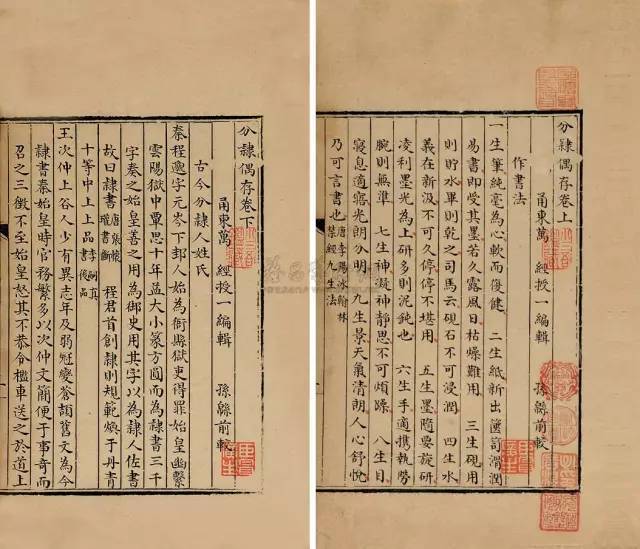 分隸偶存卷上
甬東萬　經授一編輯　孫緜前較
作書法
一生筆純毫為心軟而復健　二生紙新出篋笥滑潤
易書即受其墨若久露風日枯燥難用　三生硯用
則貯水畢則乾之司馬云硯石不可浸潤　四生水
義在新汲不可久停停不堪用　五生墨隨要旋研
凌利墨光為上研多則泥鈍也　六生手適攜執勞
腕則無準　七生神凝神靜思不可煩躁　八生目
寢息適寤光朗分明　九生景天氣清朗人心舒悅
乃可言書也　唐李陽冰翰林禁經九生法
分隸偶存卷下
甬東萬　經授一編輯　孫緜前較
古今分隸人姓氏
秦程邈字元岑下邽人始為衙縣獄吏得罪始皇幽繫
雲陽獄中覃思十年益大小篆方圓而為隸書三千
字奏之始皇善之用為御史用其字以為隸人佐書
故曰隸書　唐張懷瓘書斷　程君首創隸則規範煥于丹青
十等中上上品　李嗣真書後品
王次仲上谷人少有異志年及弱冠變蒼頡舊文為今
隸書秦始皇時官務繁多以次仲文簡便于事奇而
召之三徵不至始皇怒其不恭令檻車送之於道上